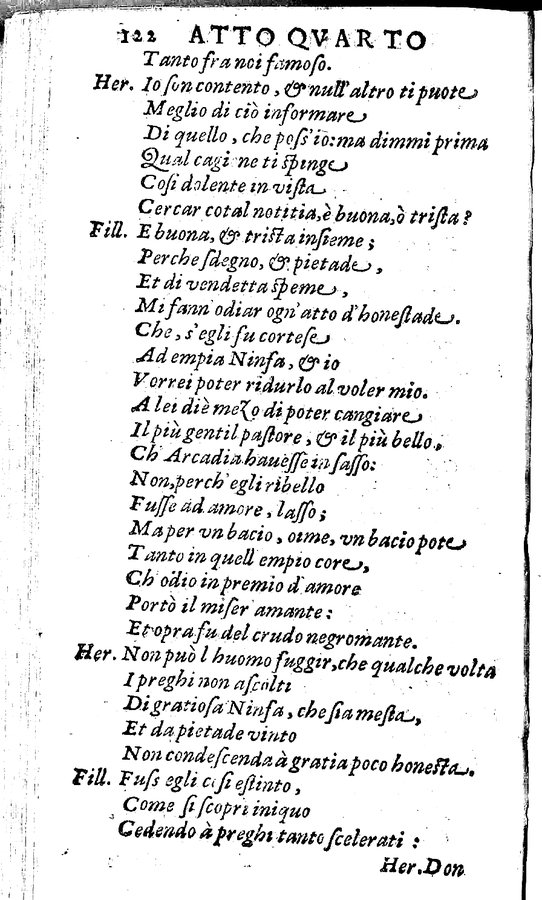 122 ATTO QVARTO
Tanto fra noi famoso.
Her. Io son contento, & null' altro ti puote
Meglio di ciò informare
Di quello, che poss'io: ma dimmi prima
Qual cagi ne ti spinge
Cosi dolente in vista
Cercar cotal notitia, è buona, ò trista?
Fill. E buona, & trista insieme;
Perche sdegno, & pietade,
Et di vendetta speme,
Mi fann' odiar ogn' atto d'honestade.
Che, s'egli fu cortese
Ad empia Ninfa, & io
Vorrei poter ridurlo al voler mio.
A lei diè mezo di poter cangiare
Il più gentil pastore, & il più bello,
Ch' Arcadia hauesse in sasso:
Non, perch' egli ribello
Fusse ad amore, lasso;
Ma per vn bacio, oime, vn bacio pote
Tanto in quell empio core,
Ch' odio in premio d' amore
Portò il miser amante:
Et opra fu del crudo negromante.
Her. Non può l huomo fuggir, che qualche volta
I preghi non ascolti
Di gratiosa Ninfa, che sia mesta,
Et da pietade vinto
Non condescenda à gratia poco honesta.
Fill. Fuss egli cosi estinto,
Come si scopri iniquo
Cedendo à preghi tanto scelerati:
Her. Don